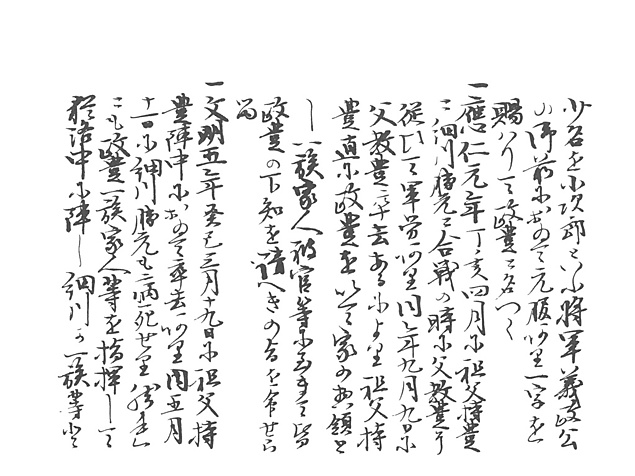 少名を小次郎といふ将軍義政公
の御前において元服あり一字を
賜ハりて政豊と名つく
一應仁元年丁亥四月に祖父持豊
と細川勝元と合戦の時に父教豊
従ひて軍労あり同元年九月九日に
父教豊卒去あるにより祖父持
豊直に政豊を以て家の惣領と
し一族家人被官等に至まて皆
政豊の下知を待へきの旨を命せら
る
一文明五年癸巳三月十九日に祖父持
豊陣中において卒去あり同五月
十一日に細川勝元も病死せり然れ
とも政豊一族家人等を指揮して
猶洛中に陣し細川か一族等と